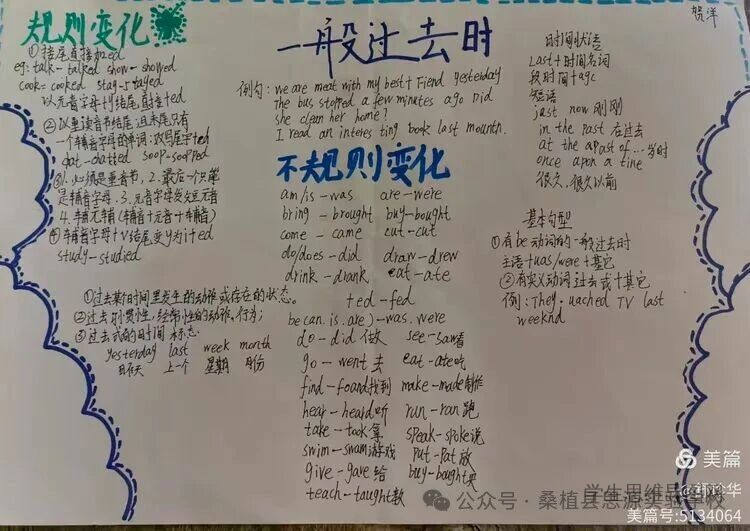 贺洋
一般过去时
规则变化
①接尾直接加ed
eg: talk-talked show-showed
cook-cooked stay-stayed
以元音字母+y结尾,直接+ed
②以重读音节结尾且末尾只有
一个辅音字母的单词:双写尾字+ed
chat-chatted
③1.必须是重音节,2.最后一个只能
是辅音字母.3.元音字母发短元音
4.辅元辅(辅音+元音+辅音)
④辅音字母+y结尾变y为i+ed
study-studied
①过去某个时间里发生的动作或存在的状态。
②过去习惯性、经常性的动作、行为;
③过去式的时间标志
yesterday last week month
昨天 上一个 星期 月份
例句: we are meat with my best Fiend yesterday
The bus stopped a few minutes ago Did
she clean her home?
I read an interes ting book last mounth.
不规则变化
am/is-was are-were
bring-brought buy-bought
come-came cut-cut
do/does-did draw-drew
drink-drank eat-ate
-fed
be(an.is.are)-was.were
do-did 做 see-saw看
go-went去 eat-ate吃
find-foand找到 make-made制作
hear-heard听 run-ran跑
take-took拿 speak-spoke说
swim-swam游戏 put-pat放
give-gave给 buy-bought买
teach-taught教
时间状语
Last+时间名词
段时间+ago
短语
just now刚刚
in the past 在过去
at the apast of...岁时
once apon a tine
很久,很久以前
基本句型
①有be动词的一般过去时
主语+was/were+其它
②有实义动词过去式+其它
例: They. uached TV last
weeknd
美篇
学生思维导图
公众号·桑植县
美篇号:5134064